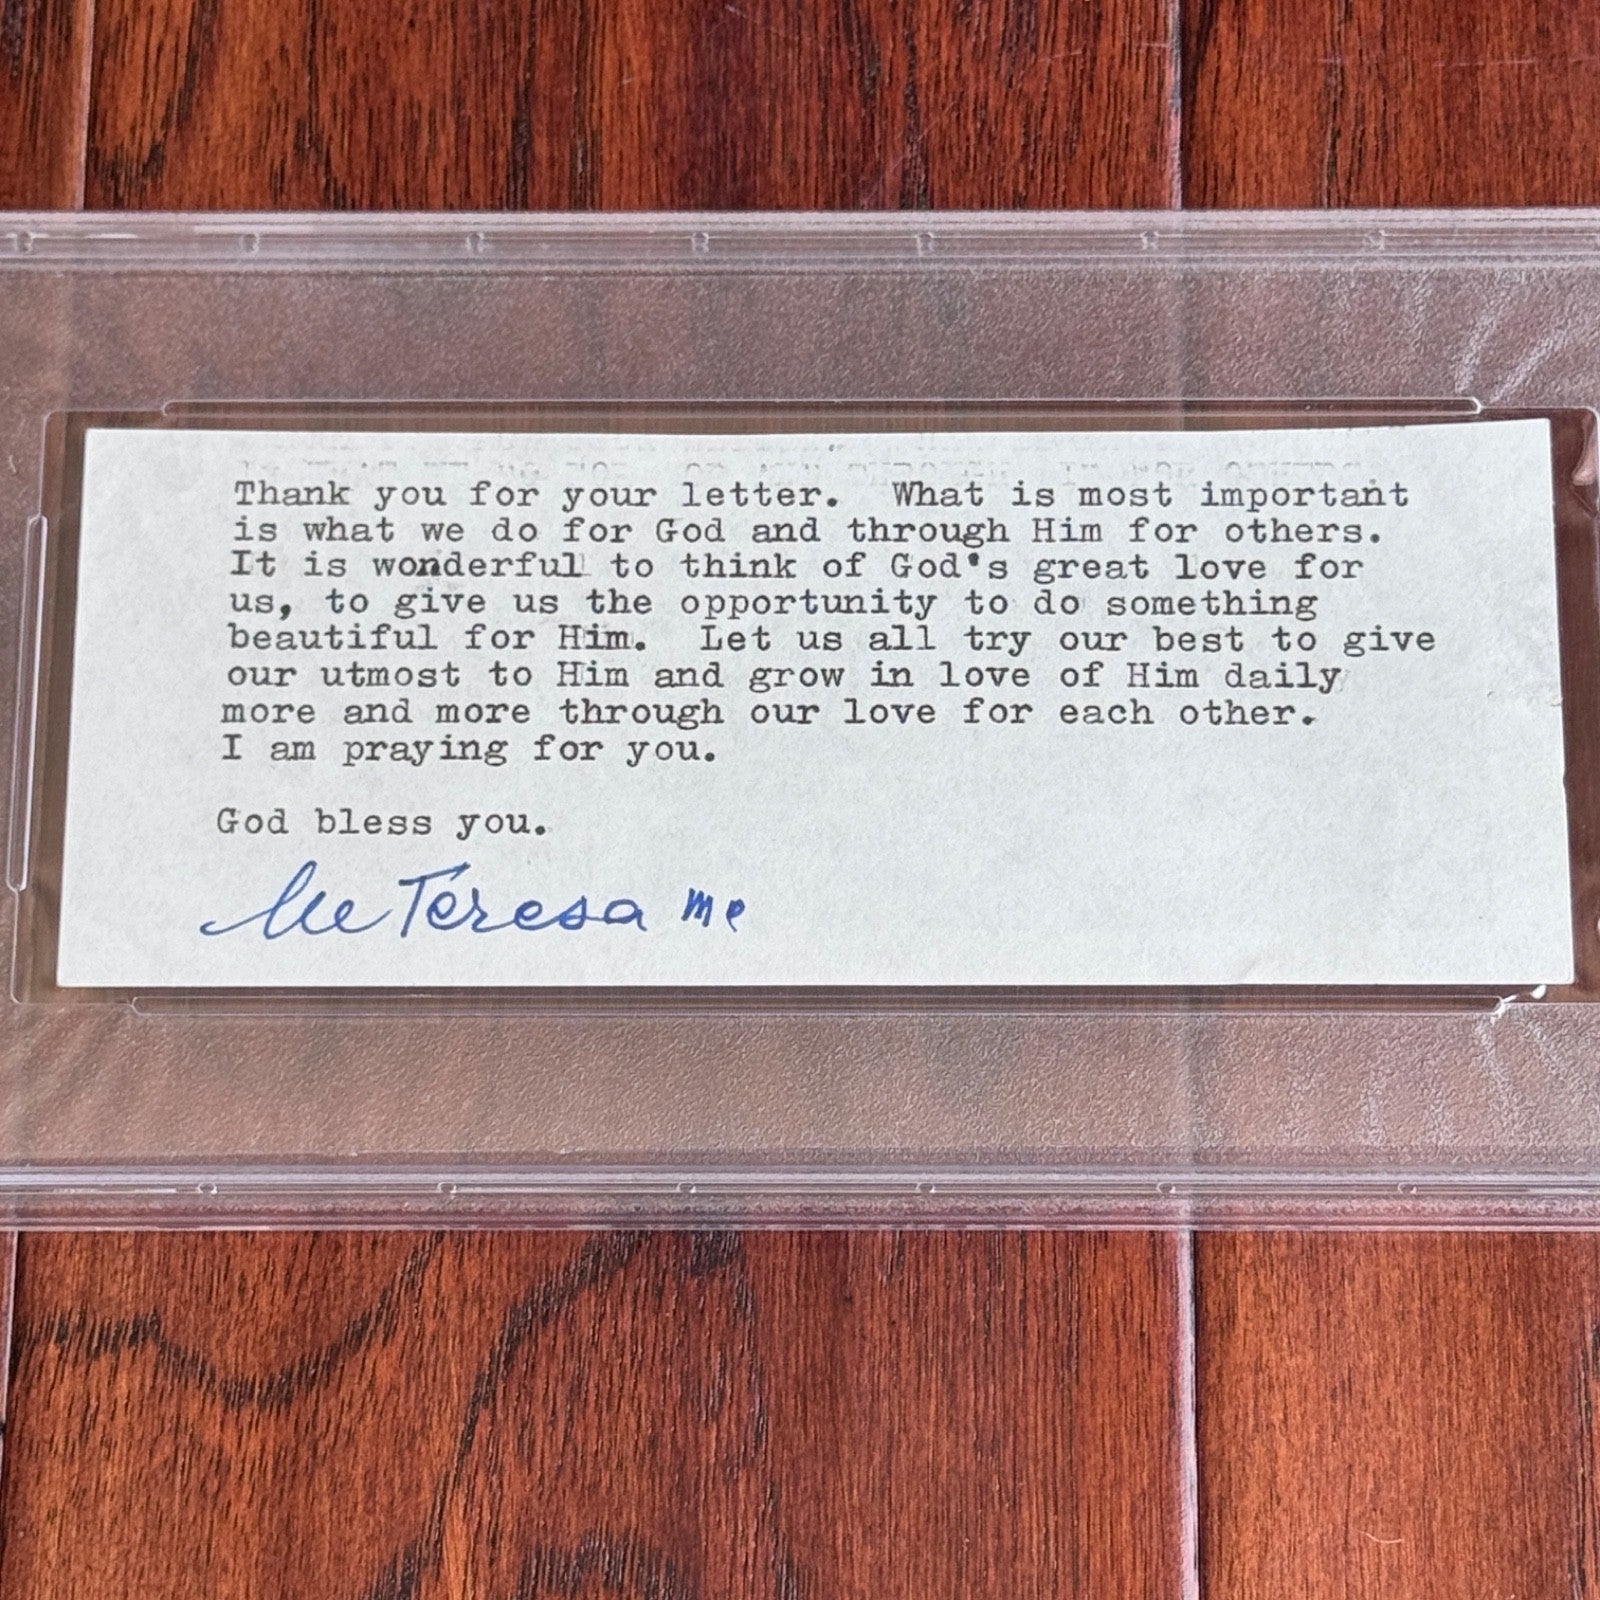 Thank you for your letter.  What is most important
is what we do for God and through Him for others.
It is wonderful to think of God's great love for
us, to give us the opportunity to do something
beautiful for Him.  Let us all try our best to give
our utmost to Him and grow in love of Him daily
more and more through our love for each other.
I am praying for you.
God bless you.
M Teresa mc